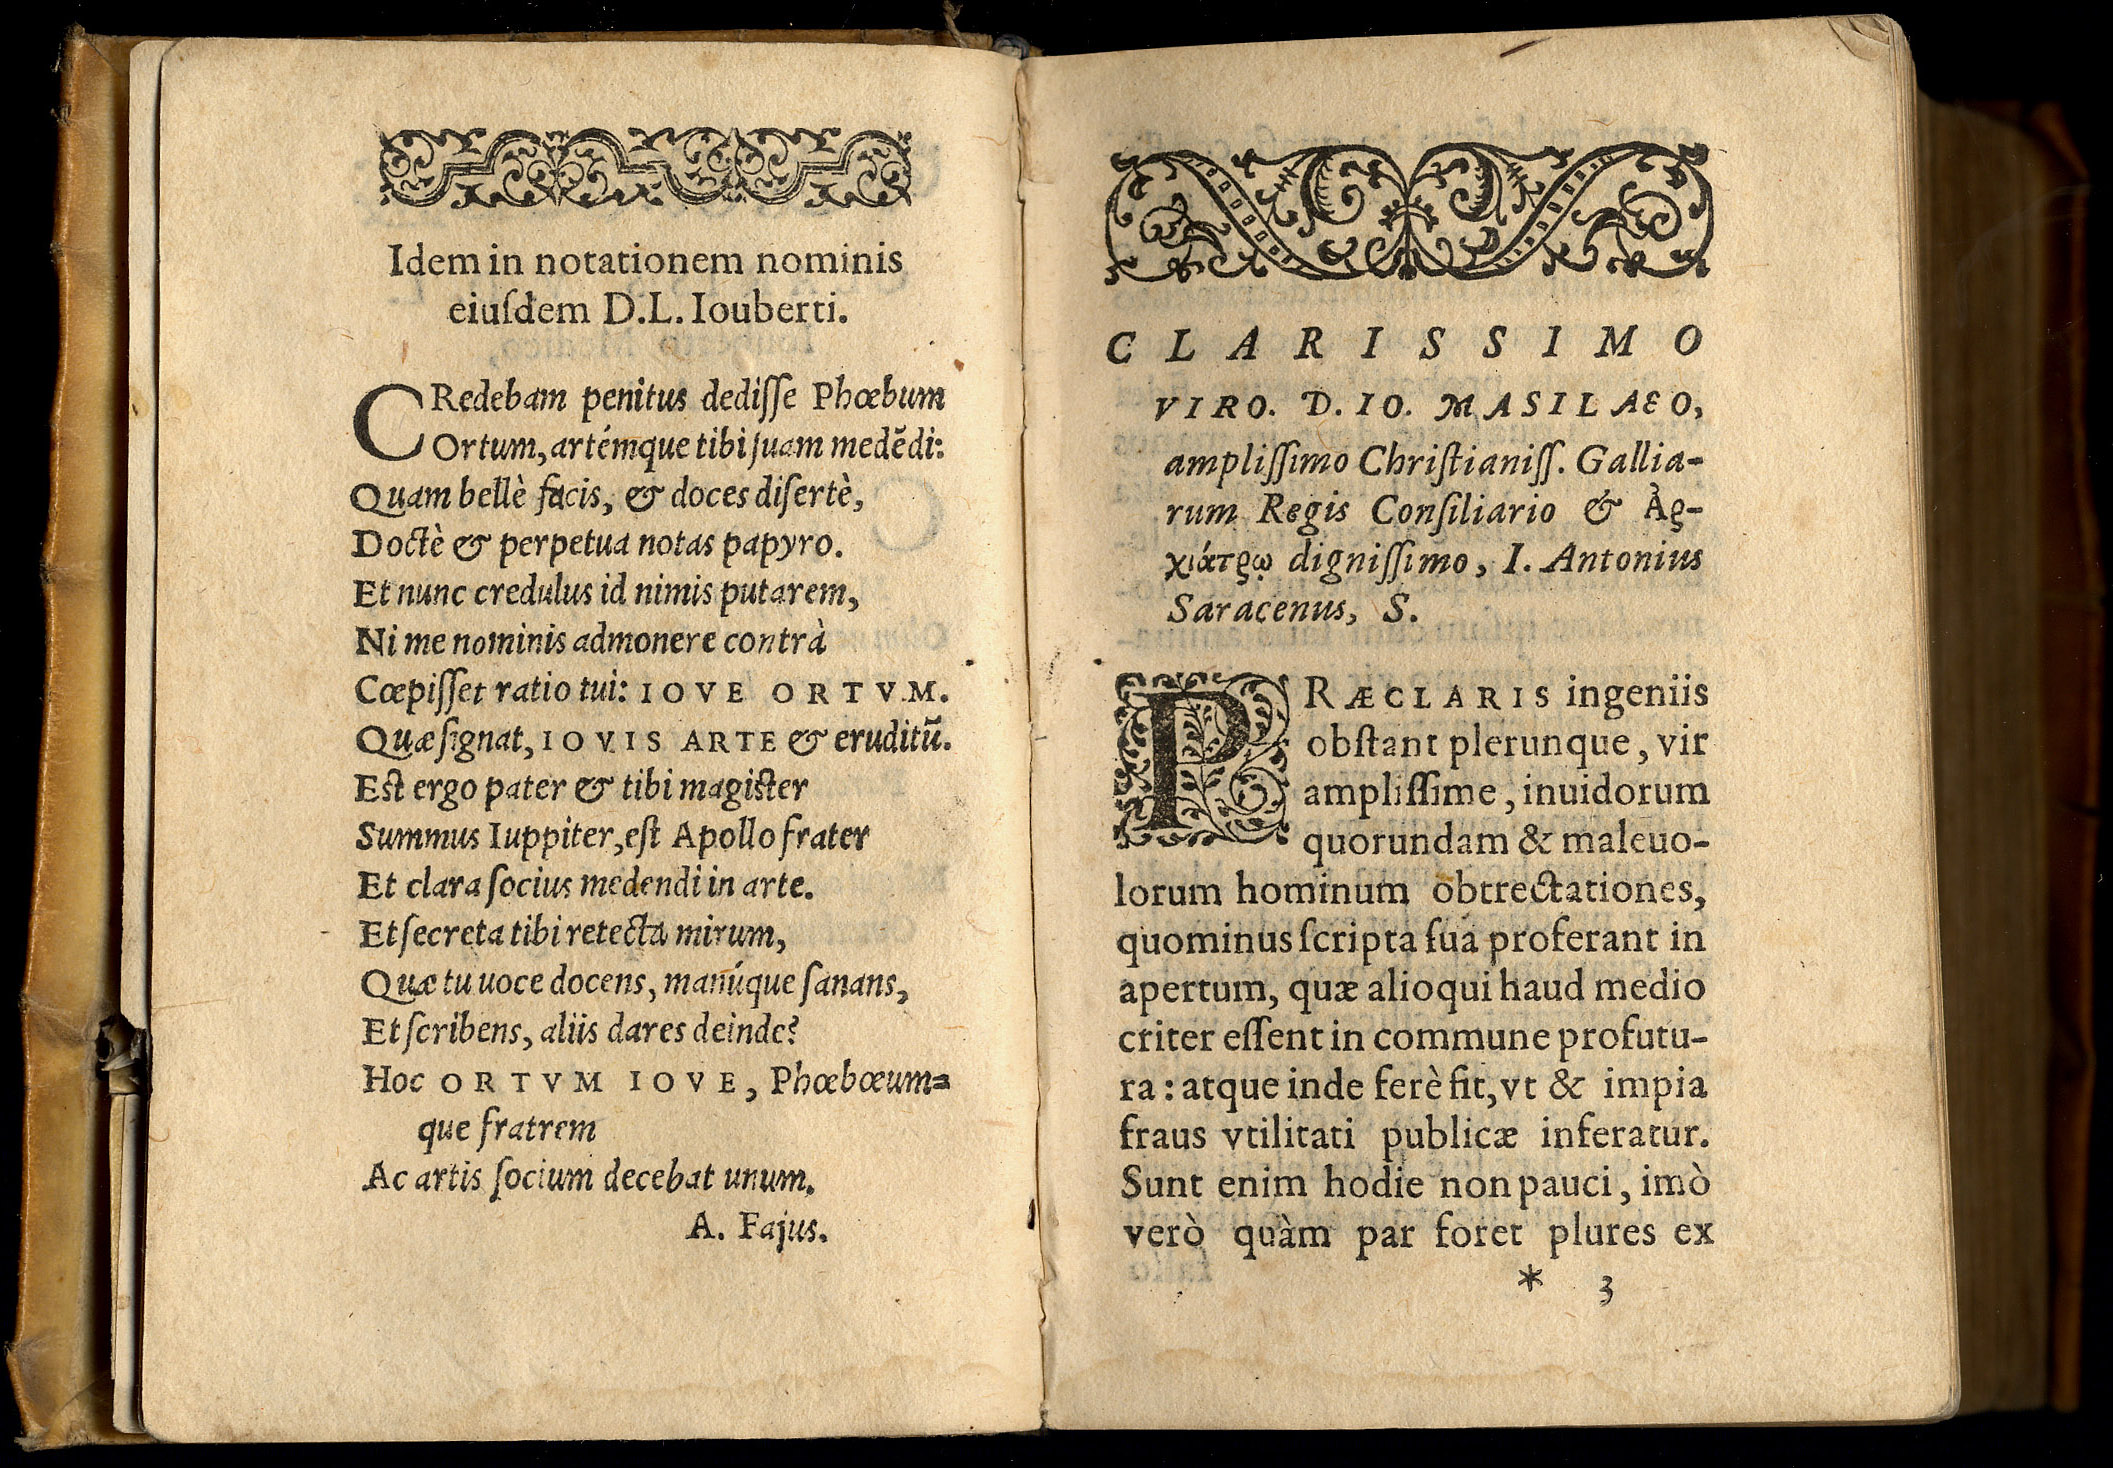 Idem in notationem nominis
eiuſdem D.L. Iouberti.
CRedebam penitus dediſſe Phœbum
Ortum, artémque tibi ſuam medēdi:
Quam bellè facis, & doces diſertè,
Doctè & perpetua notas papyro.
Et nunc credulus id nimis putarem,
Ni me nominis admonere contrà
Cœpiſſet ratio tui: IOVE ORTVM.
Quæ ſignat, IOVIS ARTE & eruditū.
Est ergo pater & tibi magister
Summus Iuppiter, eſt Apollo frater
Et clara ſocius medendi in arte.
Et ſecreta tibi retecta mirum,
Quæ tu uoce docens, manúque ſanans,
Et ſcribens, aliis dares deinde?
Hoc ORTVM IOVE, Phœbœum=
que fratrem
Ac artis ſocium decebat unum.
A. Fajus.
CLARISSIMO
VIRO. D. IO. MASILAEO,
ampliſſimo Chriſtianiſſ. Gallia-
rum Regis Conſiliario & Ἀρ-
χιάτρῳ digniſſimo, I. Antonius
Saracenus, S.
PRÆCLARIS ingeniis
obſtant plerunque, vir
ampliſſime, inuidorum
quorundam & maleuo-
lorum hominum obtrectationes,
quominus ſcripta ſua proferant in
apertum, quæ alioqui haud medio
criter eſſent in commune profutu-
ra: atque inde ferè fit, vt & impia
fraus vtilitati publicæ inferatur.
Sunt enim hodie non pauci, imò
verò quàm par foret plures ex
* 3